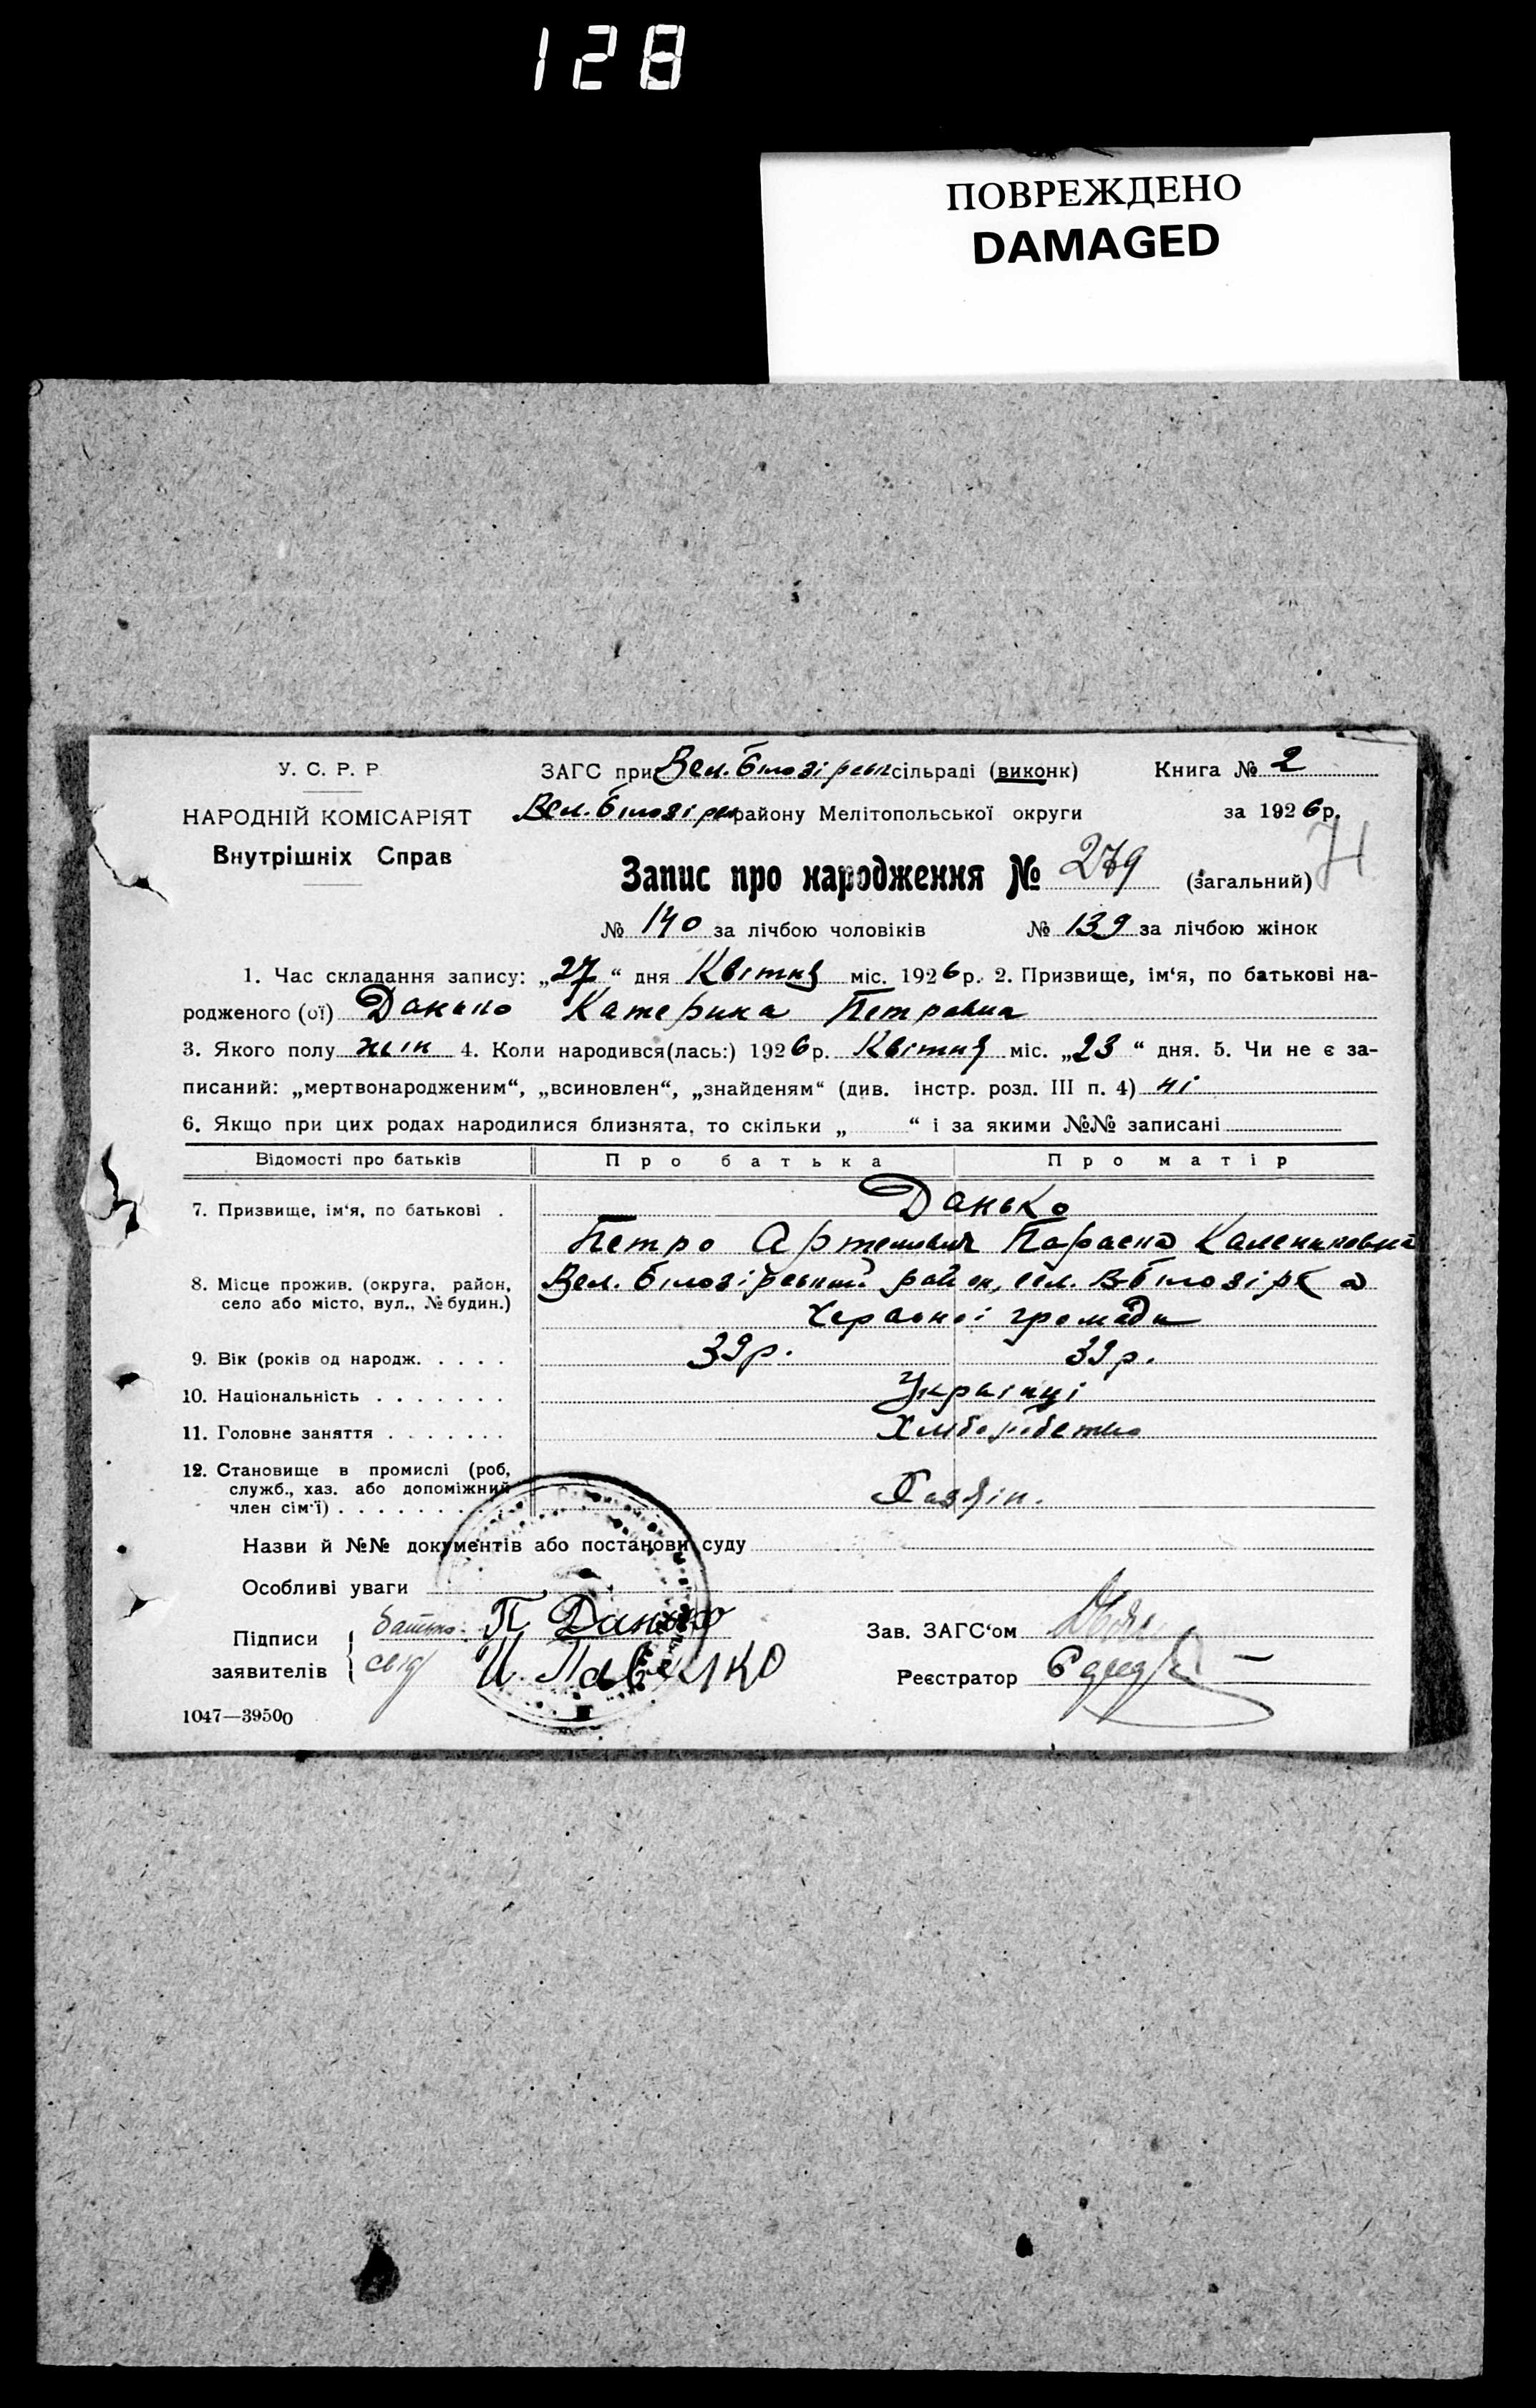 128
ПОВРЕЖДЕНО
DAMAGED
У. С. Р. Р
ЗАГС при Вел. Білозірськ сільраді (виконк) Книга № 2
НАРОДНІЙ КОМІСАРІЯТ
Вел. Білозірськ району Мелітопольської округи за 1926р.
Внутрішніх Справ
Запис про народження № 279 (загальний)
№ 140 за лічбою чоловіків № 139 за лічбою жінок
1. Час складання запису: „27“ дня Квітня міс. 1926р. 2. Призвище, ім‘я, по батькові на-
родженого (ої) Данько Катерина Петровна
3. Якого полу жін 4. Коли народився(лась:) 1926р. Квітня міс. „23“ дня. 5. Чи не є за-
писаний: „мертвонародженим“, „всиновлен“, „знайденям“ (див. інстр. розд. III п. 4) ні
6. Якщо при цих родах народилися близнята, то скільки „ “ і за якими №№ записані
Відомості про батьків Про батька Про матір
7. Призвище, ім‘я, по батькові . Данько
Петро Артемович Параска Калениковна
8. Місце прожив. (округа, район, Вел. Білозірський район, сел. В-Білозірка
село або місто, вул., № будин.)
Червоної громади
9. Вік (років од народж. . . . . 39р. 39р.
10. Національність . . . . . . . Українці
11. Головне заняття . . . . . . . Хліборобство
12. Становище в промислі (роб,
служб., хаз. або допоміжний
член сім‘ї) . . . . . . . . . Хазяін.
Назви й №№ документів або постанови суду
Особливі уваги
Підписи батько П Данько Зав. ЗАГС‘ом
заявителів свід И. Павленко Реєстратор
1047—39500